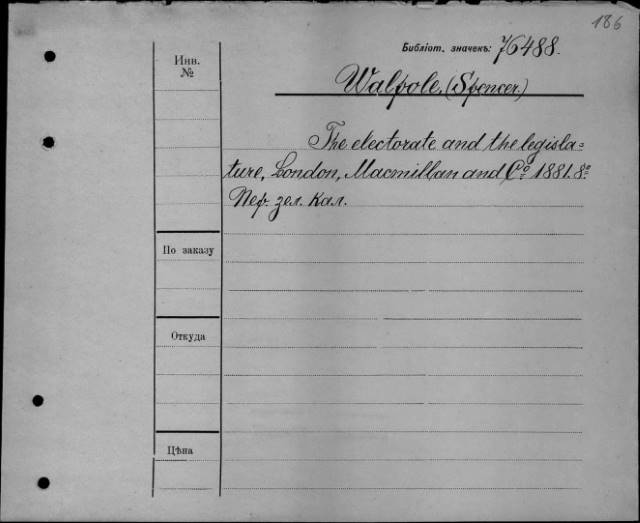 186
Библіот. значекъ: 76488.
Инв.
№
Walpole. (Spencer.)
The electorate and the legisla=
ture, London, Macmillan and Cº 1881. 8º
Пер. зел. кал.
По заказу
Откуда
Цѣна